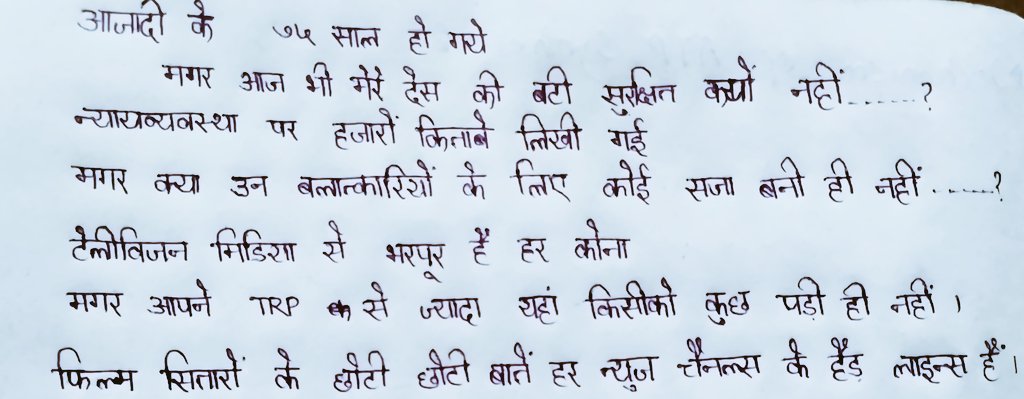 आजादी के ७५ साल हो गये
मगर आज भी मेरे देस की बटी सुरक्षित क्यों नहीं.......?
न्यायव्यवस्था पर हजारों किताबे लिखी गई
मगर क्या उन बलात्कारियों के लिए कोई सजा बनी ही नहीं.......?
टेलीविजन मिडिया से भरपूर हैं हर कोना
मगर आपने TRP से ज्यादा यहां किसीको कुछ पड़ी ही नहीं ।
फिल्म सितारों के छोटी छोटी बातें हर न्युज चैनल्स के हैड़ लाइन्स हैं ।